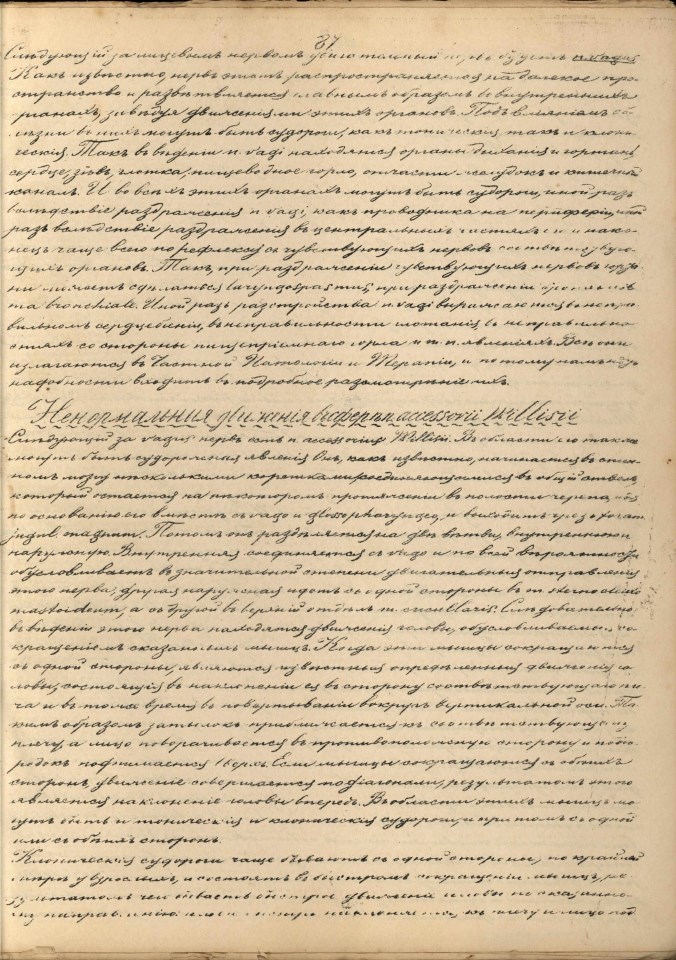 37
Слѣдующій за лицевымъ нервомъ двигательный нервъ будетъ n. vagus
Какъ извѣстно, нервъ этотъ распространяется на далекое про-
странство и развѣтвляется главнымъ образомъ во внутреннихъ
органахъ, завѣдуя движеніями этихъ органовъ. Подъ вліяніемъ бо-
лѣзни въ нихъ могутъ быть судороги, какъ тоническія такъ и клони-
ческія. Такъ въ вѣденіи n. vagi находятся органы дыханія и гортань,
сердце, зѣвъ, глотка, пищеводное горло, отчасти желудокъ и кишечный
каналъ. И во всѣхъ этихъ органахъ могутъ быть судороги, иной разъ
вслѣдствіе раздраженія n. vagi, какъ проводника на периферіи, иной
разъ вслѣдствіе раздраженія въ центральныхъ частяхъ его и нако-
нецъ чаще всего по рефлексу съ чувствующихъ нервовъ соотвѣтствую-
щихъ органовъ. Такъ, при раздраженіи чувствующихъ нервовъ горта-
ни можетъ сдѣлаться laryngospasmus, при раздраженіи бронховъ
та bronchiale. Иной разъ разстройства n. vagi выражаются въ непра-
вильномъ сердцебіеніи, въ неправильности глотанія, въ неправильно-
стяхъ со стороны пищепріемнаго горла и т. п. явленіяхъ. Всѣ они
излагаются въ Частной Патологіи и Терапіи, и потому намъ нѣтъ
надобности входить въ подробное разсмотрѣніе ихъ.
Ненормальныя движенія въ сферѣ n. accessorii Willisii
Слѣдующій за vagus нервъ есть n. accessorius Willisii. Въ области его также
могутъ быть судорожныя явленія. Онъ, какъ извѣстно, начинается въ спин-
номъ мозгу нѣсколькими корешками, соединяющимися въ общій стволъ,
который остается на нѣкоторомъ протяженіи въ полости черепа, идя
по основанію его вмѣстѣ съ vago и glossopharyngeo, и выходитъ чрезъ foram.
jugul. magnum. Потомъ онъ раздѣляется на двѣ вѣтви, внутреннюю и
наружную. Внутренняя соединяется съ vago и по всей вѣроятности
обусловливаетъ въ значительной степени двигательныя отправленія
этого нерва; другая наружная идетъ съ одной стороны въ m. sterno cleido
mastoideum, а съ другой въ верхній отдѣлъ m. cucullaris. Слѣдовательно
въ вѣденіи этого нерва находятся движенія головы, обусловливаемыя со-
кращеніемъ сказанныхъ мышцъ. Когда эти мышцы сокращаются
съ одной стороны, являются извѣстныя опредѣленныя движенія го-
ловы, состоящія въ наклоненіи ея въ сторону соотвѣтствующаго пле-
ча и въ тоже время въ повертываніи вокругъ вертикальной оси. Та-
кимъ образомъ затылокъ приближается къ соотвѣтствующему
плечу, а лицо поворачивается въ противоположную сторону и подбо-
родокъ поднимается вверхъ. Если мышцы сокращаются съ обѣихъ
сторонъ, движеніе совершается по діагонали, результатомъ этого
является наклоненіе головы впередъ. Въ области этихъ мышцъ мо-
гутъ быть и тоническія и клоническія судороги, и при томъ съ одной
или съ обѣихъ сторонъ.
Клоническія судороги чаще бываютъ съ одной стороны, по крайней
мѣрѣ у взрослыхъ, и состоятъ въ быстромъ сокращеніи мышцъ, ре-
зультатомъ чего бываетъ быстрое движеніе головы по сказанно-
му направленію: голова быстро наклоняется къ плечу и лицо под